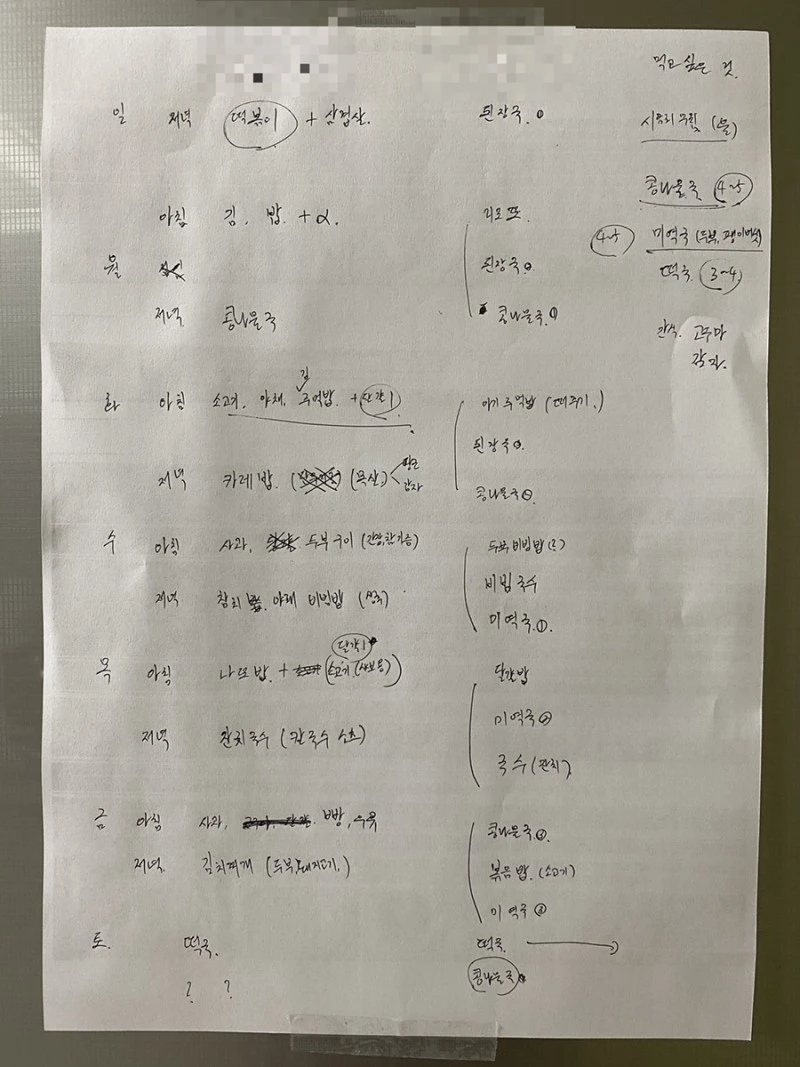 먹고 싶은 것.
일 저녁 떡볶이 + 삼겹살. 된장국.
시금치 무침 (물)
콩나물국 4~5
아침 김, 밥. +α. 리조또.
4~5 미역국 (두부, 팽이버섯)
월 된장국.
떡국. 3~4
저녁. 콩나물국 콩나물국. ①
간식. 고구마
감자.
김
화 아침 소고기. 야채. 주먹밥. + 계란 1 아기 주먹밥
된장국.
저녁 카레밥. (목살) 당근
감자
콩나물국 ②
수 아침 사과, 두부구이 (간장, 참기름) 두부 비빔밥
비빔국수
저녁 참치 야채 비빔밥 미역국. ①
달걀 1
목 아침 나또밥. + 소고기 (샤브용) 달걀밥
미역국 ②
저녁 잔치국수 (칼국수 소츠) 국수 (잔치)
금 아침 사과, 빵, 우유 콩나물국
저녁. 김치찌개 (두부, 돼지고기.) 볶음밥. (소고기)
미역국 ③
토. 떡국. 떡국.
콩나물국
? ?